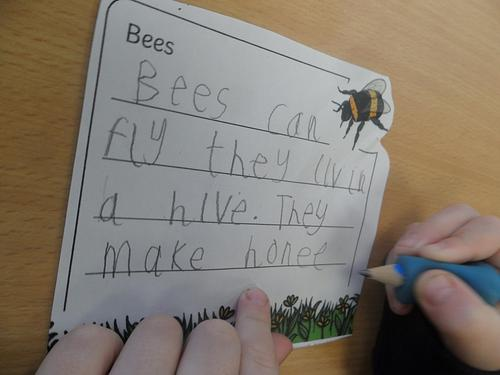 Bees
Bees can
fly they livin
a hive. They
make honee